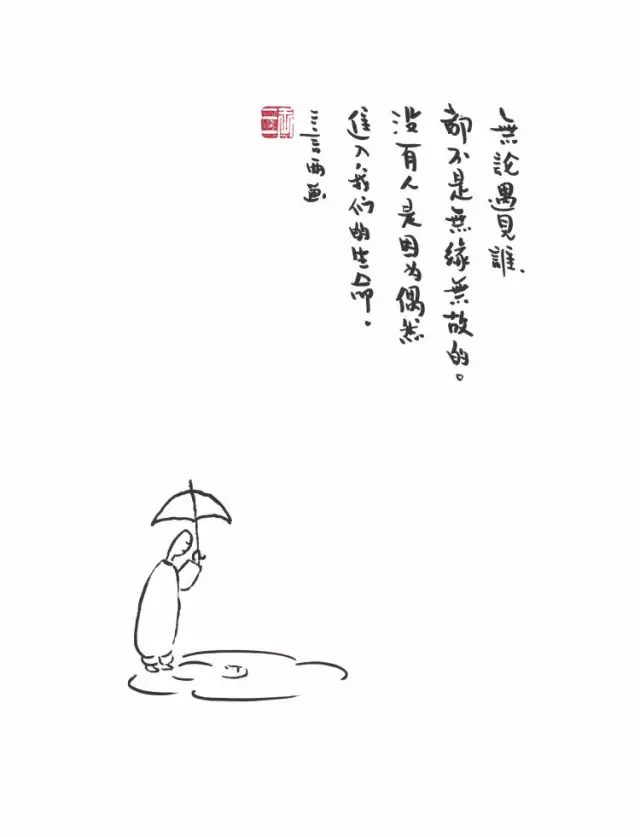 無論遇見誰,
都不是無緣無故的。
没有人是因为偶然
進入我们的生命。